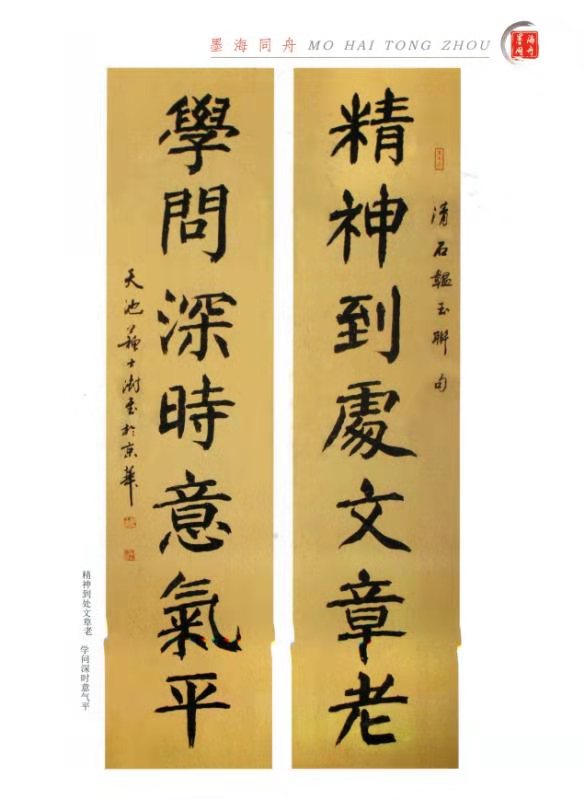 墨海同舟 MO HAI TONG ZHOU
精神到處文章老
清石韞玉聯句
學問深時意氣平
天池蘇士澍書於京華
精神到处文章老 学问深时意气平